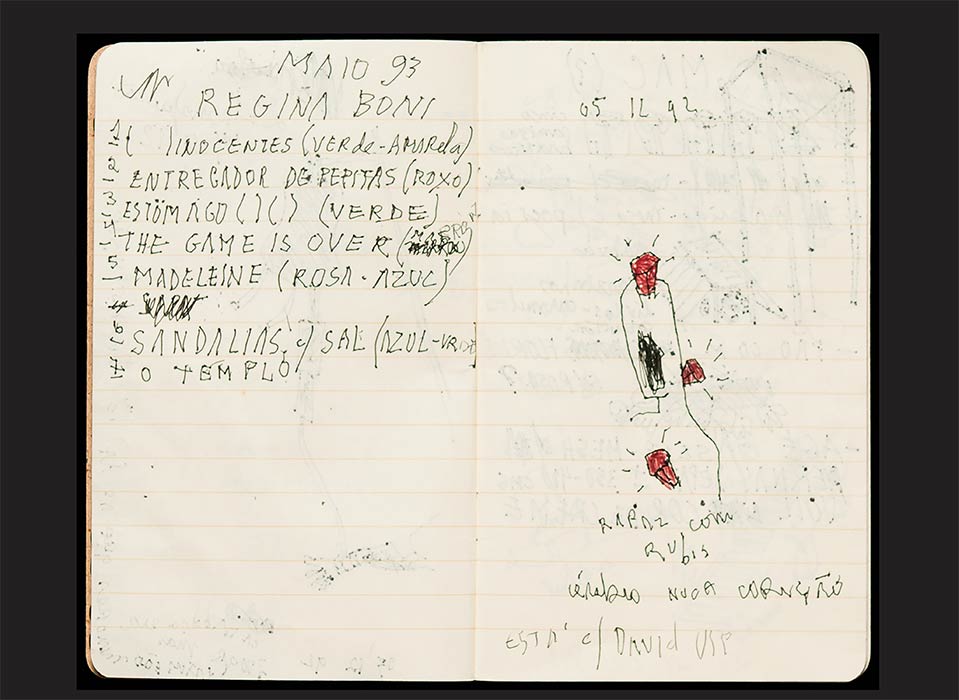 MAIO 93
REGINA BONI
1 ( ) INOCENTES (VERde-AMARela)
2 ENTREGADOR DE PEPITAS (ROXO)
3 ESTÔMAGO ( ) ( ) (VERDE)
4 THE GAME IS OVER
5 MADELEINE (ROSA-AZUL)
6 SANDALIAS c/ SAL (AZUL-VRDE
7 O TEMPLO
05 12 92
RAPAZ COM
RUbis
NUCA CORAÇÃO
ESTÁ c/ DAVId USP